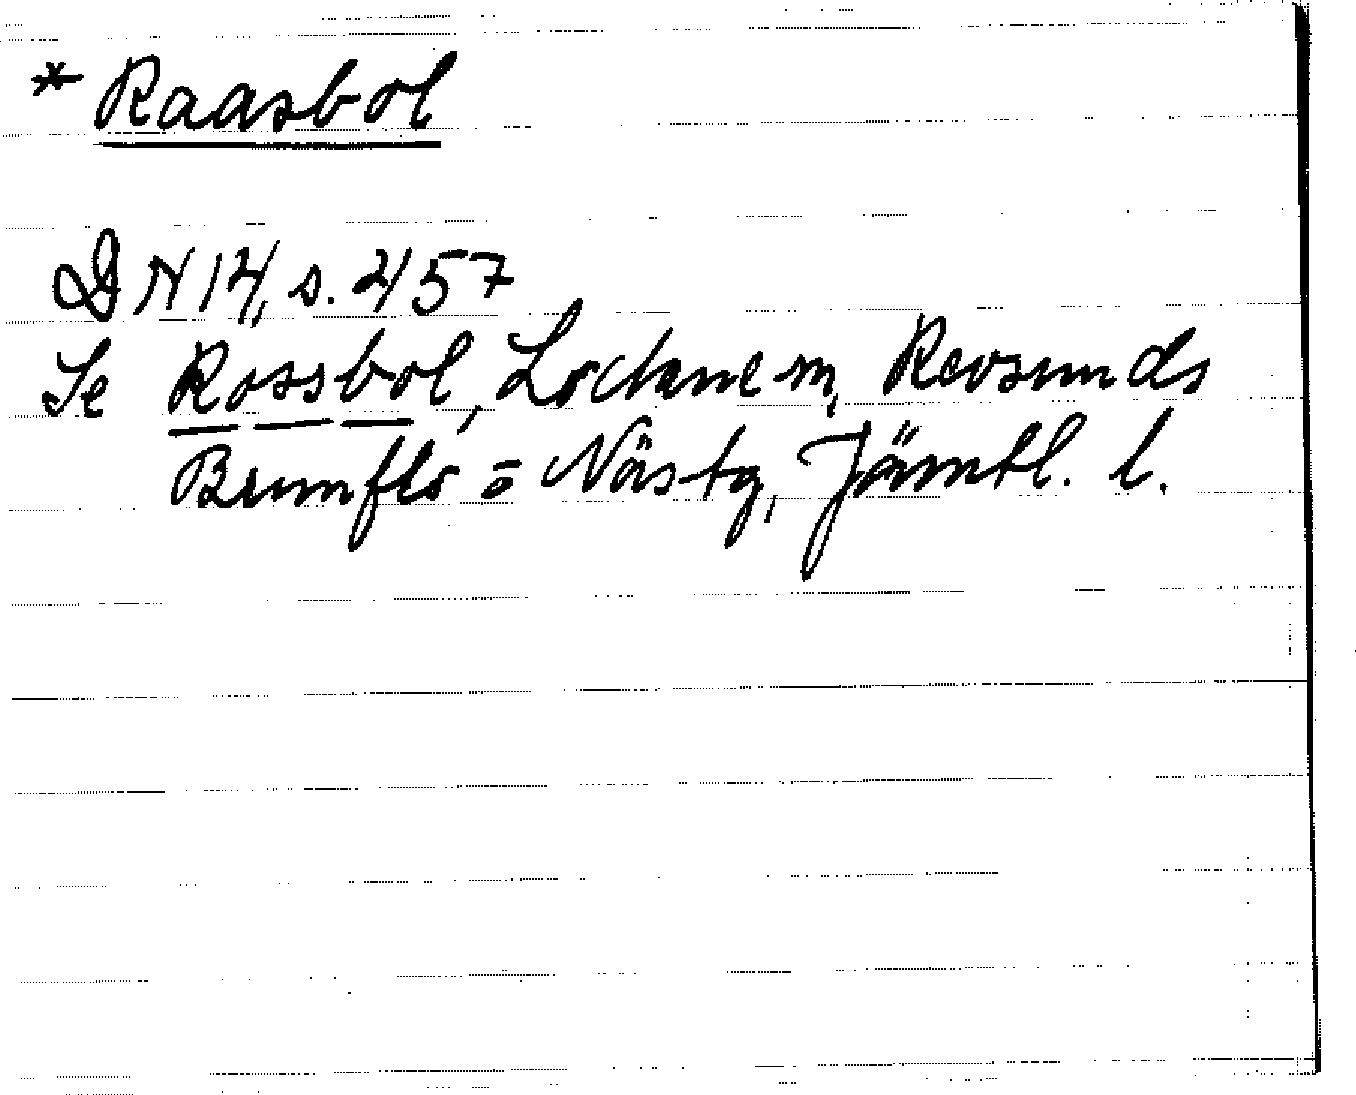 * Raasbol
DN 14, s. 457
Se Rossbol, Lockne sn, Revsunds
Brunflo o Näs tg, Jämtl. l.